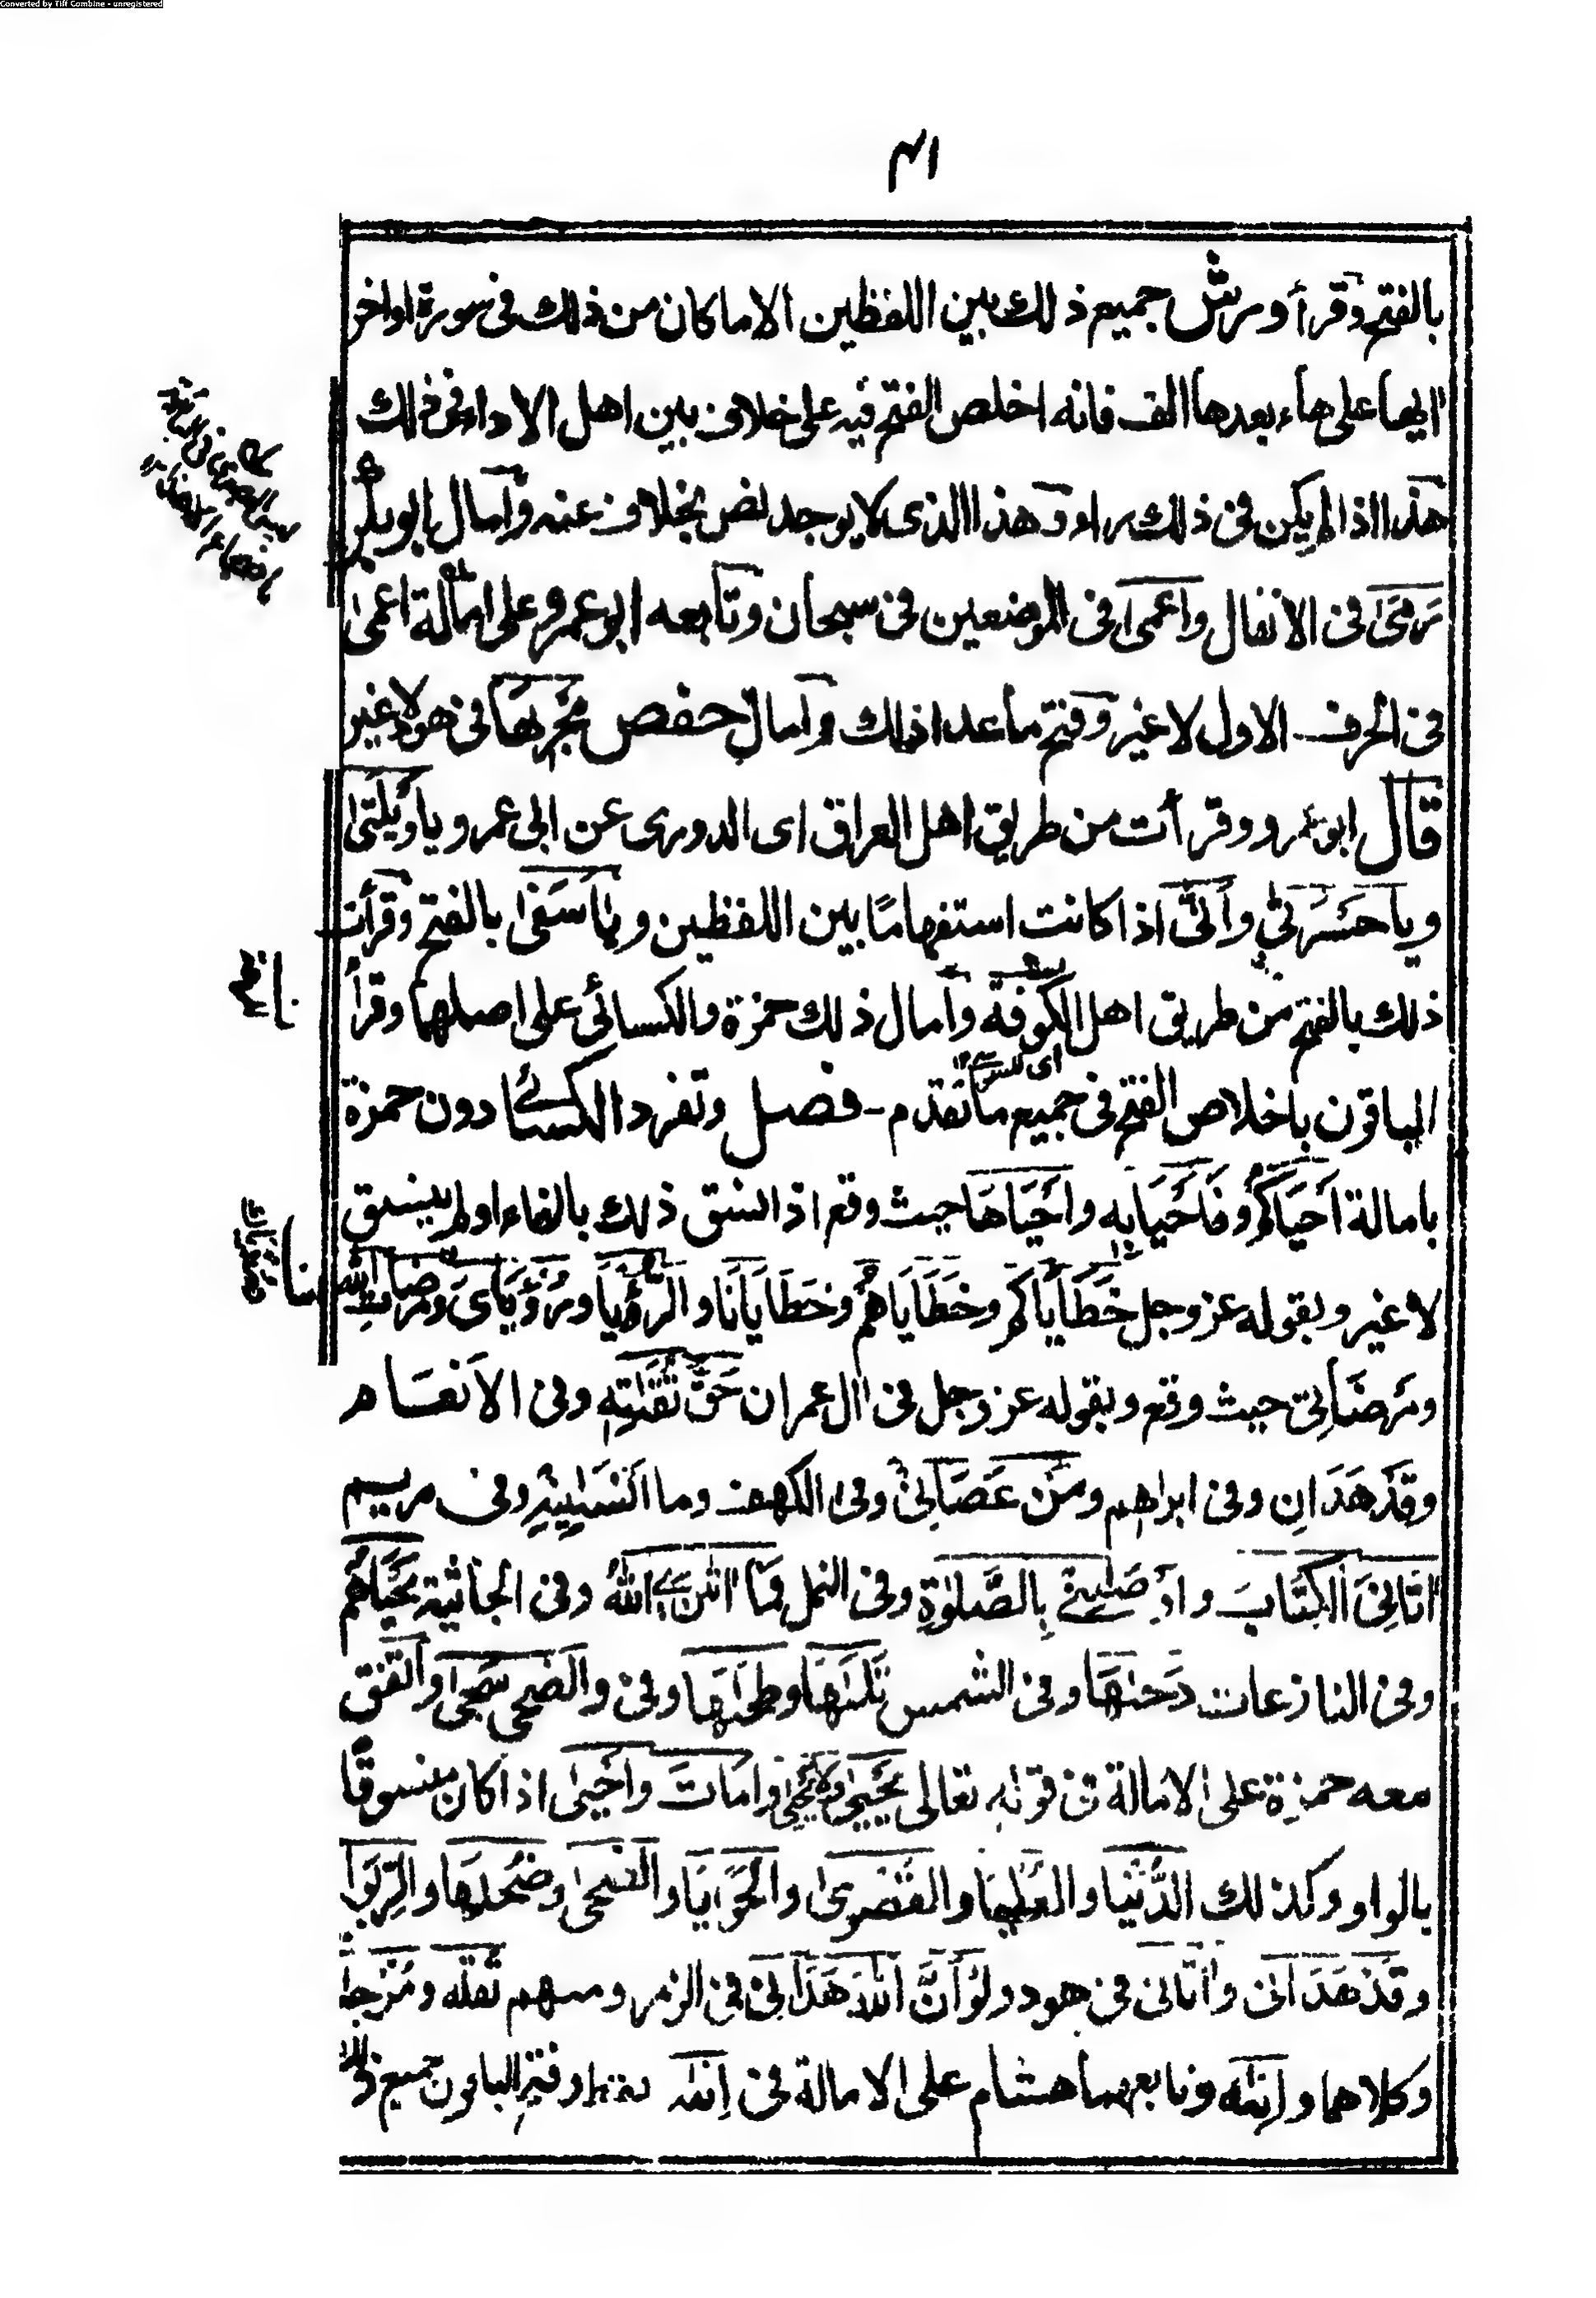 Converted by Tiff Combine - unregistered
٤١
بالفتح وقرأ ورش جميع ذلك بين اللفظين الا ما كان من ذلك فى سورة اواخر
ايها على هاء بعدها الف فانه اخلص الفتح فيه على خلاف بين اهل الاداء فى ذلك
هذا اذا لم يكن فى ذلك راء وهذا الذى لا يوجد نص بخلاف عنه وامال ابوبكر
رَمَىٰ فى الانفال واعمىٰ فى الموضعين فى سبحان وتابعه ابو عمرو على امالة اعمىٰ
فى الحرف الاول لا غير وفتح ما عدا ذلك وامال حفص مَجْرٖىهَا فى هود لا غير
قال ابو عمرو وقرأت من طريق اهل العراق اى الدورى عن ابى عمرو يا وَيْلَتىٰ
ويا حَسْرَتىٰ وأَنّىٰ اذا كانت استفهامًا بين اللفظين ويا أَسَفىٰ بالفتح وقرأت
ذلك بالفتح من طريق اهل الكوفة وامال ذلك حمزة والكسائى على اصلهما وقرأ
الباقون باخلاص الفتح فى جميع ما تقدم - فصل وتفرد الكسائى دون حمزة
بامالة اَحْيَاكُمْ وفَاَحْيَا بِهِ واَحْيَاهَا حيث وقع اذا نسق ذلك بالفاء او لم ينسق
لا غير وبقوله عز وجل خَطَايَاكُمْ وخَطَايَاهُمْ وخَطَايَانَا والرُّؤْيَا ورُؤْيَاىَ ومَرْضَاتِ الله
ومَرْضَاتِى حيث وقع وبقوله عز وجل فى اٰل عمران حَقَّ تُقٰتِهٖ وفى الاَنعَام
وقَدْ هَدَانِ وفى ابراهيم ومَنْ عَصَانِىْ وفى الكهف وما اَنْسٰنِيْهِ وفى مريم
اٰتَانِىَ الْكِتَابَ واَوْصٰنِىْ بِالصَّلٰوةِ وفى النمل فَمَا اٰتٰنِۦَ اللّٰهُ وفى الجاثية مَحْيَاهُمْ
وفى النازعات دَحٰهَا وفى الشمس تَلٰهَا وطَحٰهَا وفى والضحى سَجىٰ واتفق
معه حمزة على الامالة فى قوله تعالى يَحْيىٰ ولا يَحْيىٰ واَمَاتَ واَحْيىٰ اذا كان منسوقًا
بالواو وكذلك الدُّنْيَا والعُلْيَا والقُصْوىٰ والحَوَايَا والضُّحىٰ وضُحٰهَا والرِّبوا
وقَدْ هَدَانِى واٰتَانِى فى هود ولَوْ أَنَّ اللّٰهَ هَدَانِى فى الزمر ومنهم تُقٰىةً ومُزْجٰىةٍ
وكلاهما واِنٰىهُ وتابعهما هشام على الامالة فى اِنٰىهُ فقط وفتح الباقون جميع ذلك